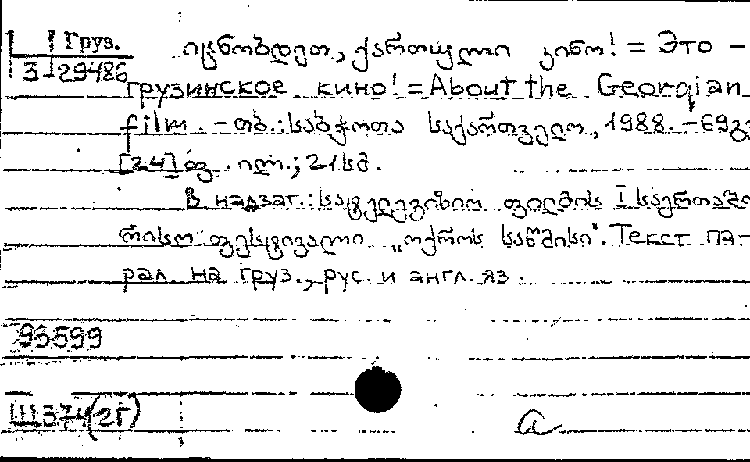 Груз.
3-29486
იცნობდეთ, ქართული კინო! = Это -
грузинское кино! = About the Georgian
film. - თბ.: საბჭოთა საქართველო, 1988. - 69გვ
[24] გვ. ილ.; 21სმ.
В надзаг.: სატელევიზიო ფილმის I საერთაშო
რისო ფესტივალი „ოქროს საწმისი“. Текст па-
рал. на груз., рус. и англ. яз.
95599
Ш374(2Г)
a